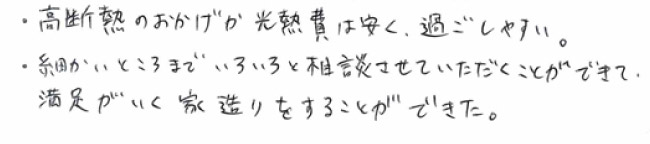 ・高断熱のおかげか光熱費は安く、過ごしやすい。
・細かいところまでいろいろと相談させていただくことができて、
満足がいく家造りをすることができた。